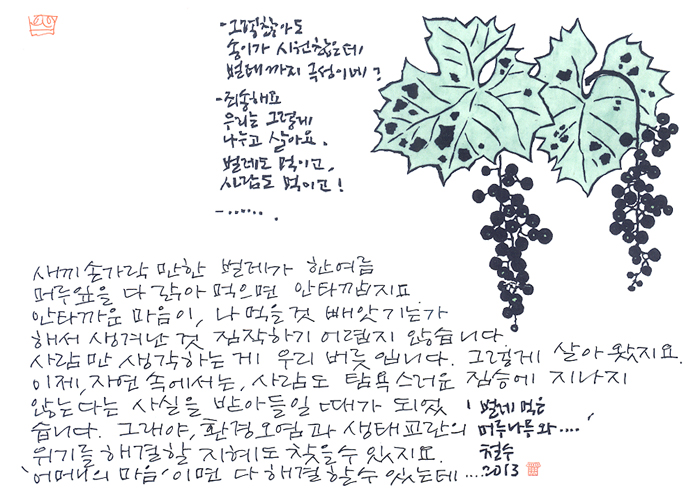 -그렇찮아도
송이가 시원찮은데
벌레까지 극성이네?
-죄송해요
우리는 그렇게
나누고 살아요.
벌레도 먹이고,
사람도 먹이고!
-.......
새끼손가락 만한 벌레가 한여름
머루잎을 다 갉아 먹으면 안타깝지요
안타까운 마음이, 나 먹을 것 빼앗기는가
해서 생겨난 것 짐작하기 어렵지 않습니다
사람만 생각하는 게 우리 버릇입니다. 그렇게 살아왔지요.
이제, 자연 속에서는, 사람도 탐욕스러운 짐승에 지나지
않는다는 사실을 받아들일 때가 되었
습니다. 그래야, 환경오염과 생태교란의
위기를 해결할 지혜도 찾을수 있지요.
'어머니의 마음'이면 다 해결할수 있는데....
'벌레 먹은
머루나무와....'
철수
2013